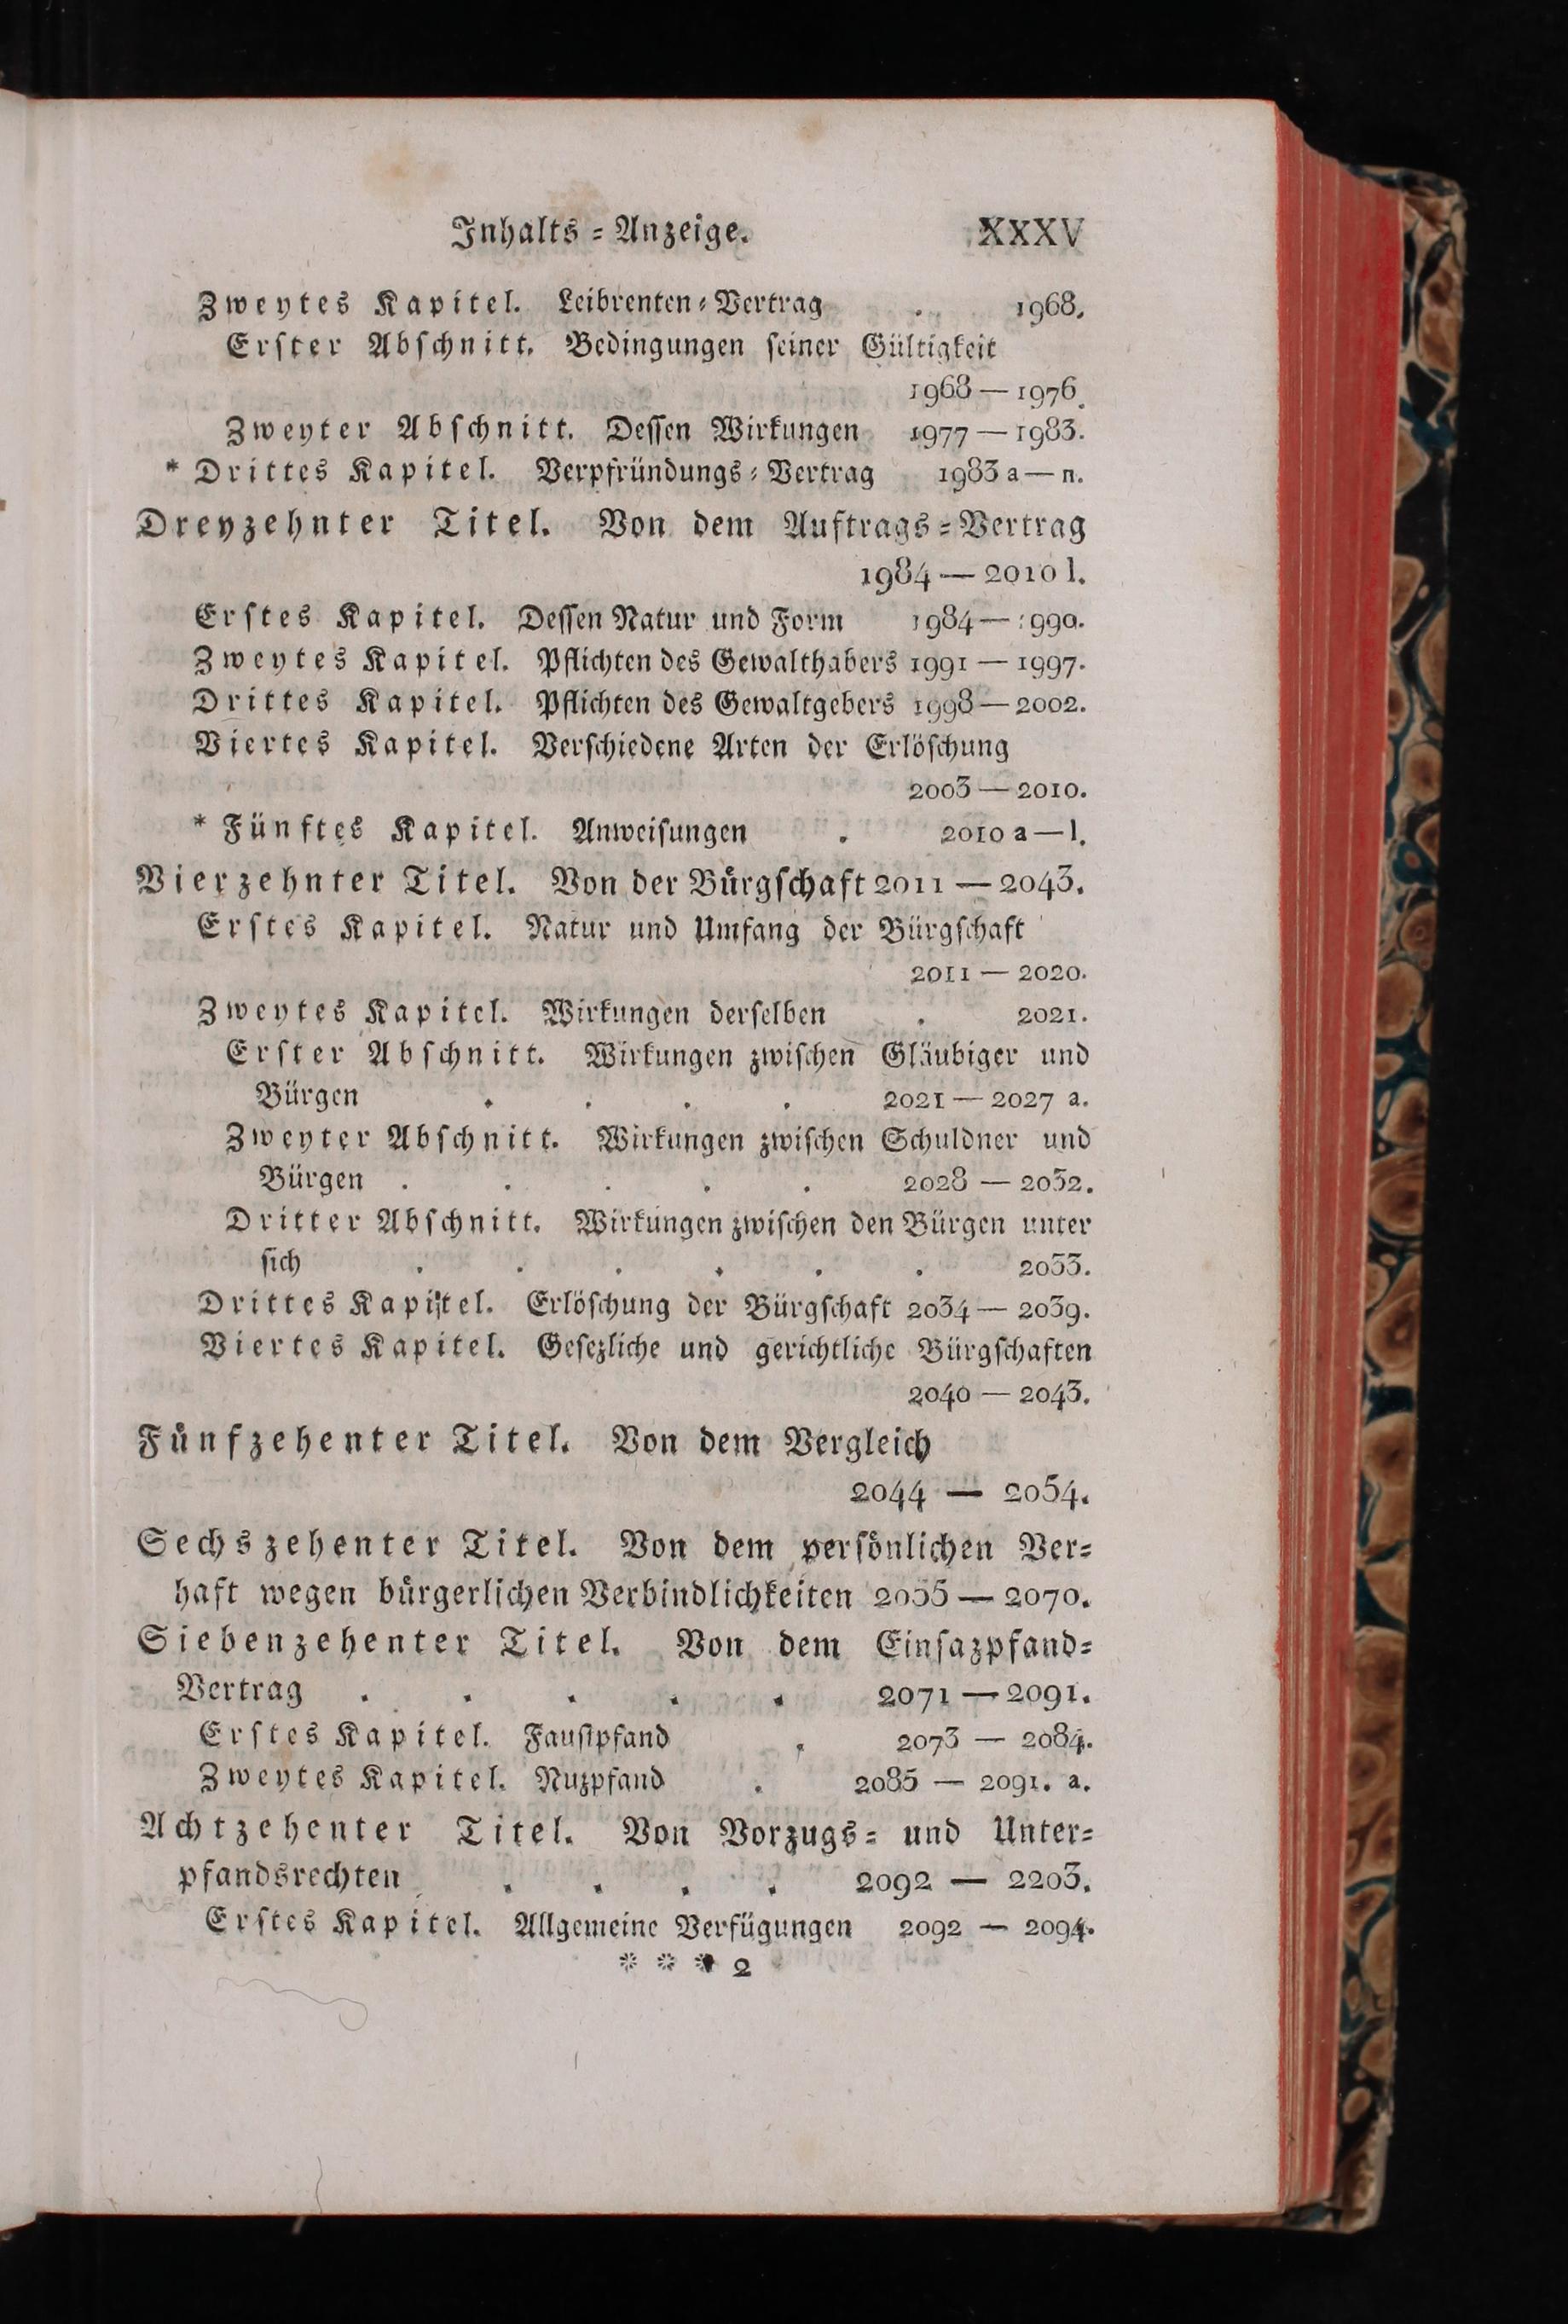 Inhalts-Anzeige. XXXV
Zweytes Kapitel. Leibrenten-Vertrag . 1968.
Erster Abschnitt. Bedingungen seiner Gültigkeit
1968 — 1976.
Zweyter Abschnitt. Dessen Wirkungen 1977 — 1983.
* Drittes Kapitel. Verpfründungs-Vertrag 1983 a — n.
Dreyzehnter Titel. Von dem Auftrags-Vertrag
1984 — 2010 l.
Erstes Kapitel. Dessen Natur und Form 1984 — 1990.
Zweytes Kapitel. Pflichten des Gewalthabers 1991 — 1997.
Drittes Kapitel. Pflichten des Gewaltgebers 1998 — 2002.
Viertes Kapitel. Verschiedene Arten der Erlöschung
2003 — 2010.
* Fünftes Kapitel. Anweisungen . 2010 a — l.
Vierzehnter Titel. Von der Bürgschaft 2011 — 2043.
Erstes Kapitel. Natur und Umfang der Bürgschaft
2011 — 2020.
Zweytes Kapitel. Wirkungen derselben . 2021.
Erster Abschnitt. Wirkungen zwischen Gläubiger und
Bürgen . . . . 2021 — 2027 a.
Zweyter Abschnitt. Wirkungen zwischen Schuldner und
Bürgen . . . . . 2028 — 2032.
Dritter Abschnitt. Wirkungen zwischen den Bürgen unter
sich . . . . . . 2033.
Drittes Kapitel. Erlöschung der Bürgschaft 2034 — 2039.
Viertes Kapitel. Gesezliche und gerichtliche Bürgschaften
2040 — 2043.
Fünfzehenter Titel. Von dem Vergleich
2044 — 2054.
Sechszehenter Titel. Von dem persönlichen Ver-
haft wegen bürgerlichen Verbindlichkeiten 2055 — 2070.
Siebenzehenter Titel. Von dem Einsazpfand-
Vertrag . . . . . 2071 — 2091.
Erstes Kapitel. Faustpfand . 2073 — 2084.
Zweytes Kapitel. Nuzpfand . 2085 — 2091. a.
Achtzehenter Titel. Von Vorzugs- und Unter-
pfandsrechten . . . . 2092 — 2203.
Erstes Kapitel. Allgemeine Verfügungen 2092 — 2094.
* * * 2